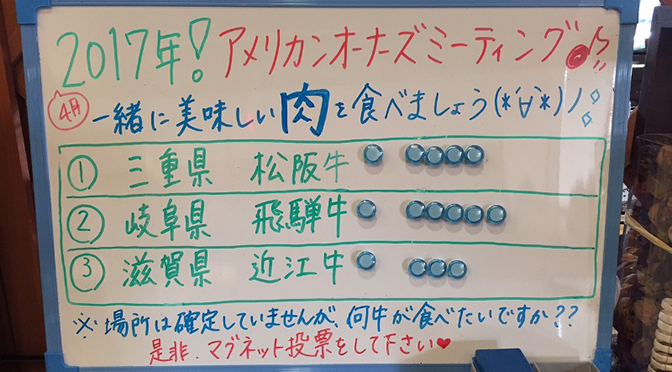 2017年！アメリカンオーナーズミーティング♪
4月
一緒に美味しい肉を食べましょう(*´∀`*)ノ
① 三重県 松阪牛
② 岐阜県 飛騨牛
③ 滋賀県 近江牛
※場所は確定していませんが、何牛が食べたいですか??
是非、マグネット投票をして下さい♥